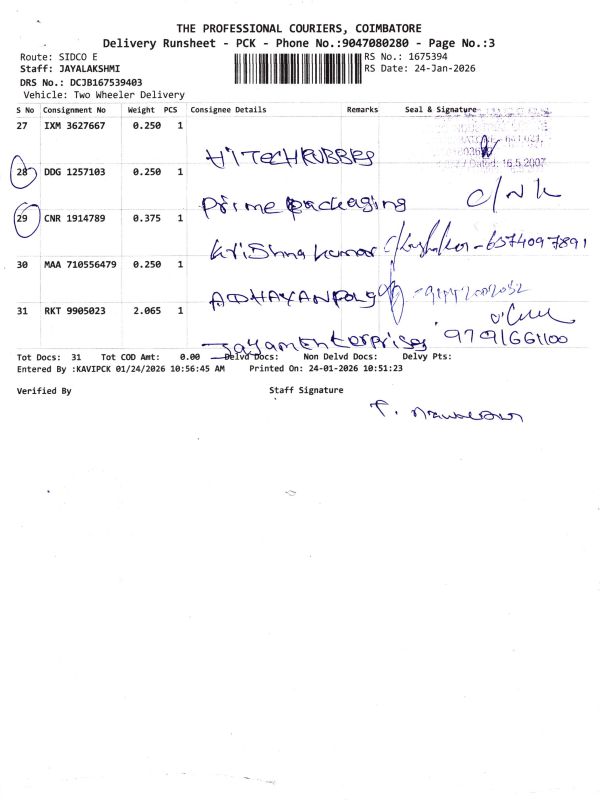 THE PROFESSIONAL COURIERS, COIMBATORE
Delivery Runsheet - PCK - Phone No.:9047080280 - Page No.:3
Route: SIDCO E
RS No.: 1675394
Staff: JAYALAKSHMI
RS Date: 24-Jan-2026
DRS No.: DCJB167539403
Vehicle: Two Wheeler Delivery
S No Consignment No Weight PCS Consignee Details Remarks Seal & Signature
27 IXM 3627667 0.250 1
HITECHRUBBER
Dated: 16.5.2007
28 DDG 1257103 0.250 1
Prime packaging
29 CNR 1914789 0.375 1
Krishna kumar - 6374097891
30 MAA 710556479 0.250 1
31 RKT 9905023 2.065 1
Jayam Enterprises 9791661100
Tot Docs: 31 Tot COD Amt: 0.00 Delvd Docs: Non Delvd Docs: Delvy Pts:
Entered By :KAVIPCK 01/24/2026 10:56:45 AM Printed On: 24-01-2026 10:51:23
Verified By Staff Signature